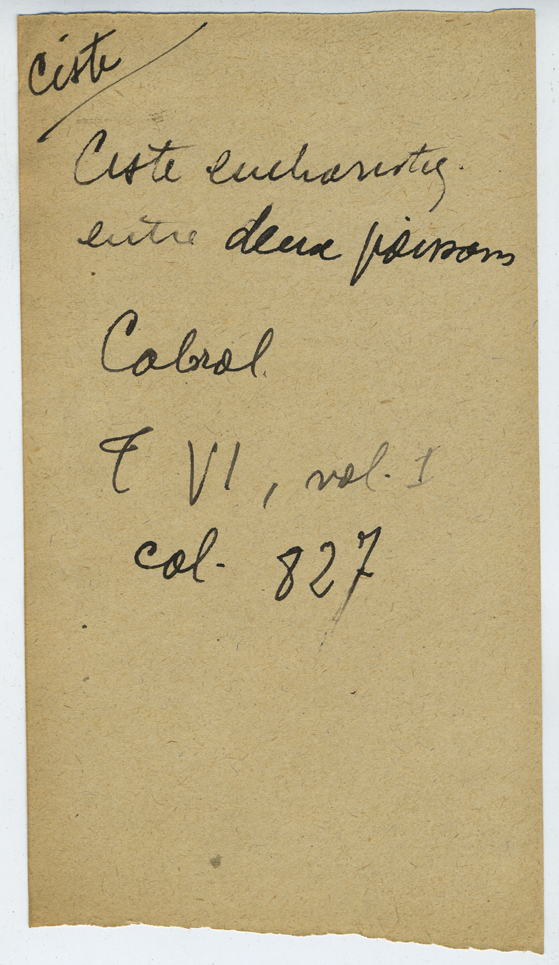 Ciste
Ciste eucharistiq.
entre deux poissons
Cabrol
T VI, vol. I
col. 827